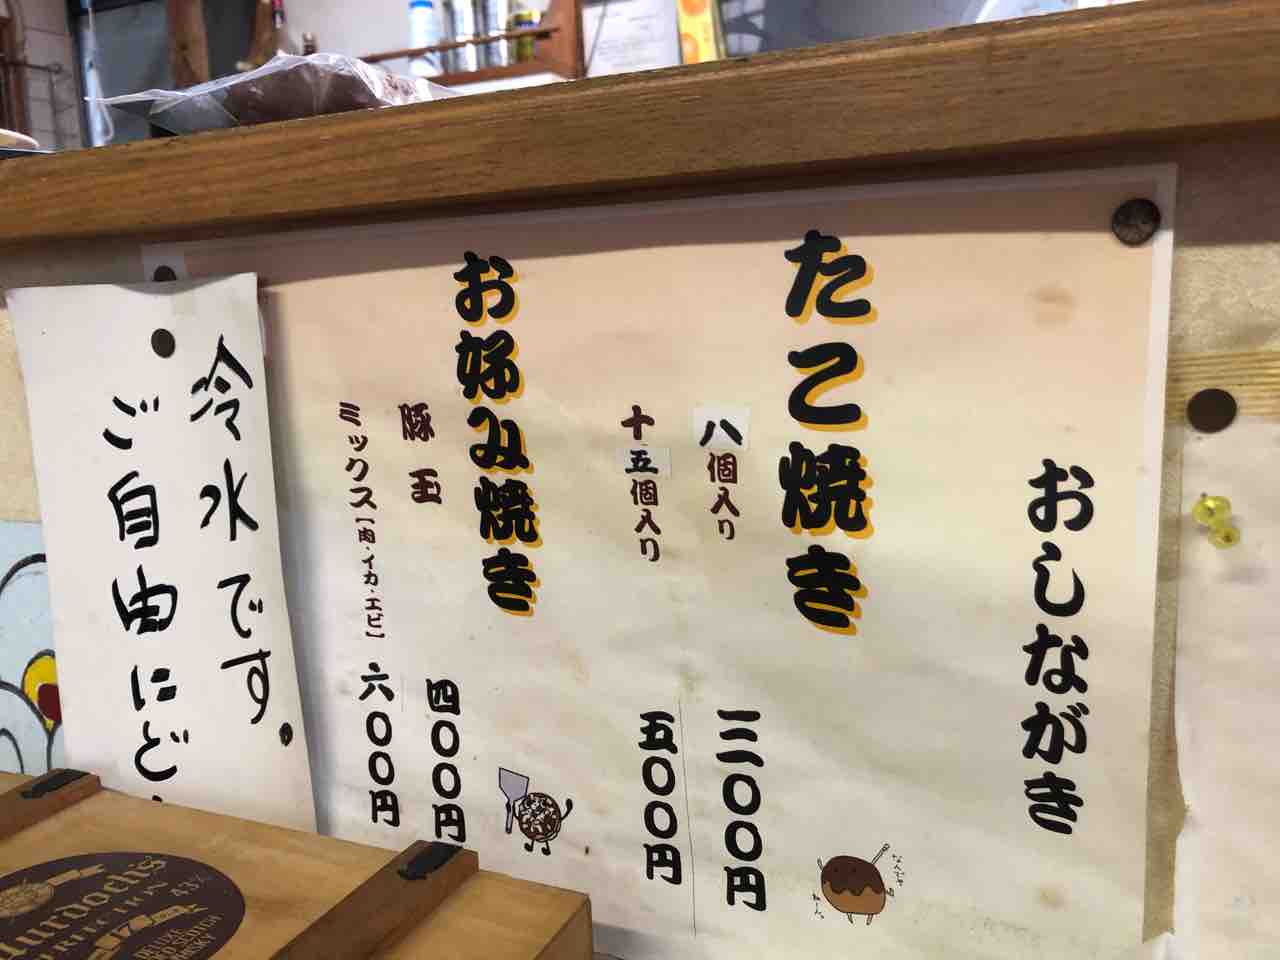 おしながき
たこ焼き
八個入り 三〇〇円
十五個入り 五〇〇円
お好み焼き
豚玉 四〇〇円
ミックス【肉・イカ・エビ】 六〇〇円
なんでや
ねーん
冷水です。
ご自由にど
DELUXE
43%